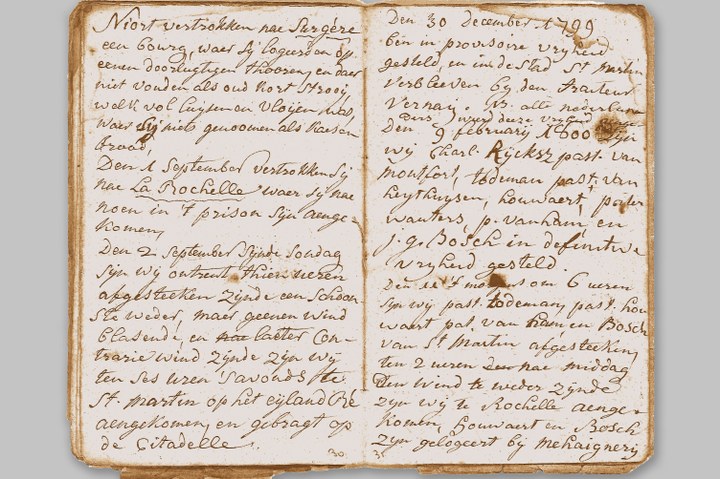 Niort vertrokken nae Surgére
een bourg, waer sy logeerden op
eenen doorlugtigen thooren, en daer
niet vonden als oud kort strooij,
welk vol luysen en vloijen was,
waer sij niets genoomen als kaes en
broad,
Den 1 September vertrokken sy
nae La Rochelle waer sy nae
noen in 't prison syn aenge-
komen,
Den 2 September synde sondag
syn wy ontrent thien ueren
afgesteeken zynde een schoon-
ste weder, maer geenen wind
blasende, en nae laeter Con-
trarie wind zynde zyn wy
ten ses uren savonds te
St. Martin op het eyland Ré
aengekomen, en gebragt op
de Citadelle.
30
Den 30 december 1799
bin in provisoire vryheid
gesteld, en in de stad St Martin
verbleeven by den Traiteur
Vernaij. alle nederlan
ders deze
Den 9 february 1800 zijn
wij Charl. Rijcksz past. van
montfort, todeman past, van
heythuysen, houwaert, peeter
wauters, p. van ham, en
j. g. Bosch in definitive
vryheid gesteld.
Den 11 't morgens om 6 ueren
syn wij past. todeman, past. hou
waert pat. van ham en Bosch
van St Martin afgesteeken,
ten 2 ueren nae middag
Den wind te weder zynde
zyn wij te Rochelle aenge-
komen, houwaert en Bosch
zyn gelogeert bij Mehaignery
31